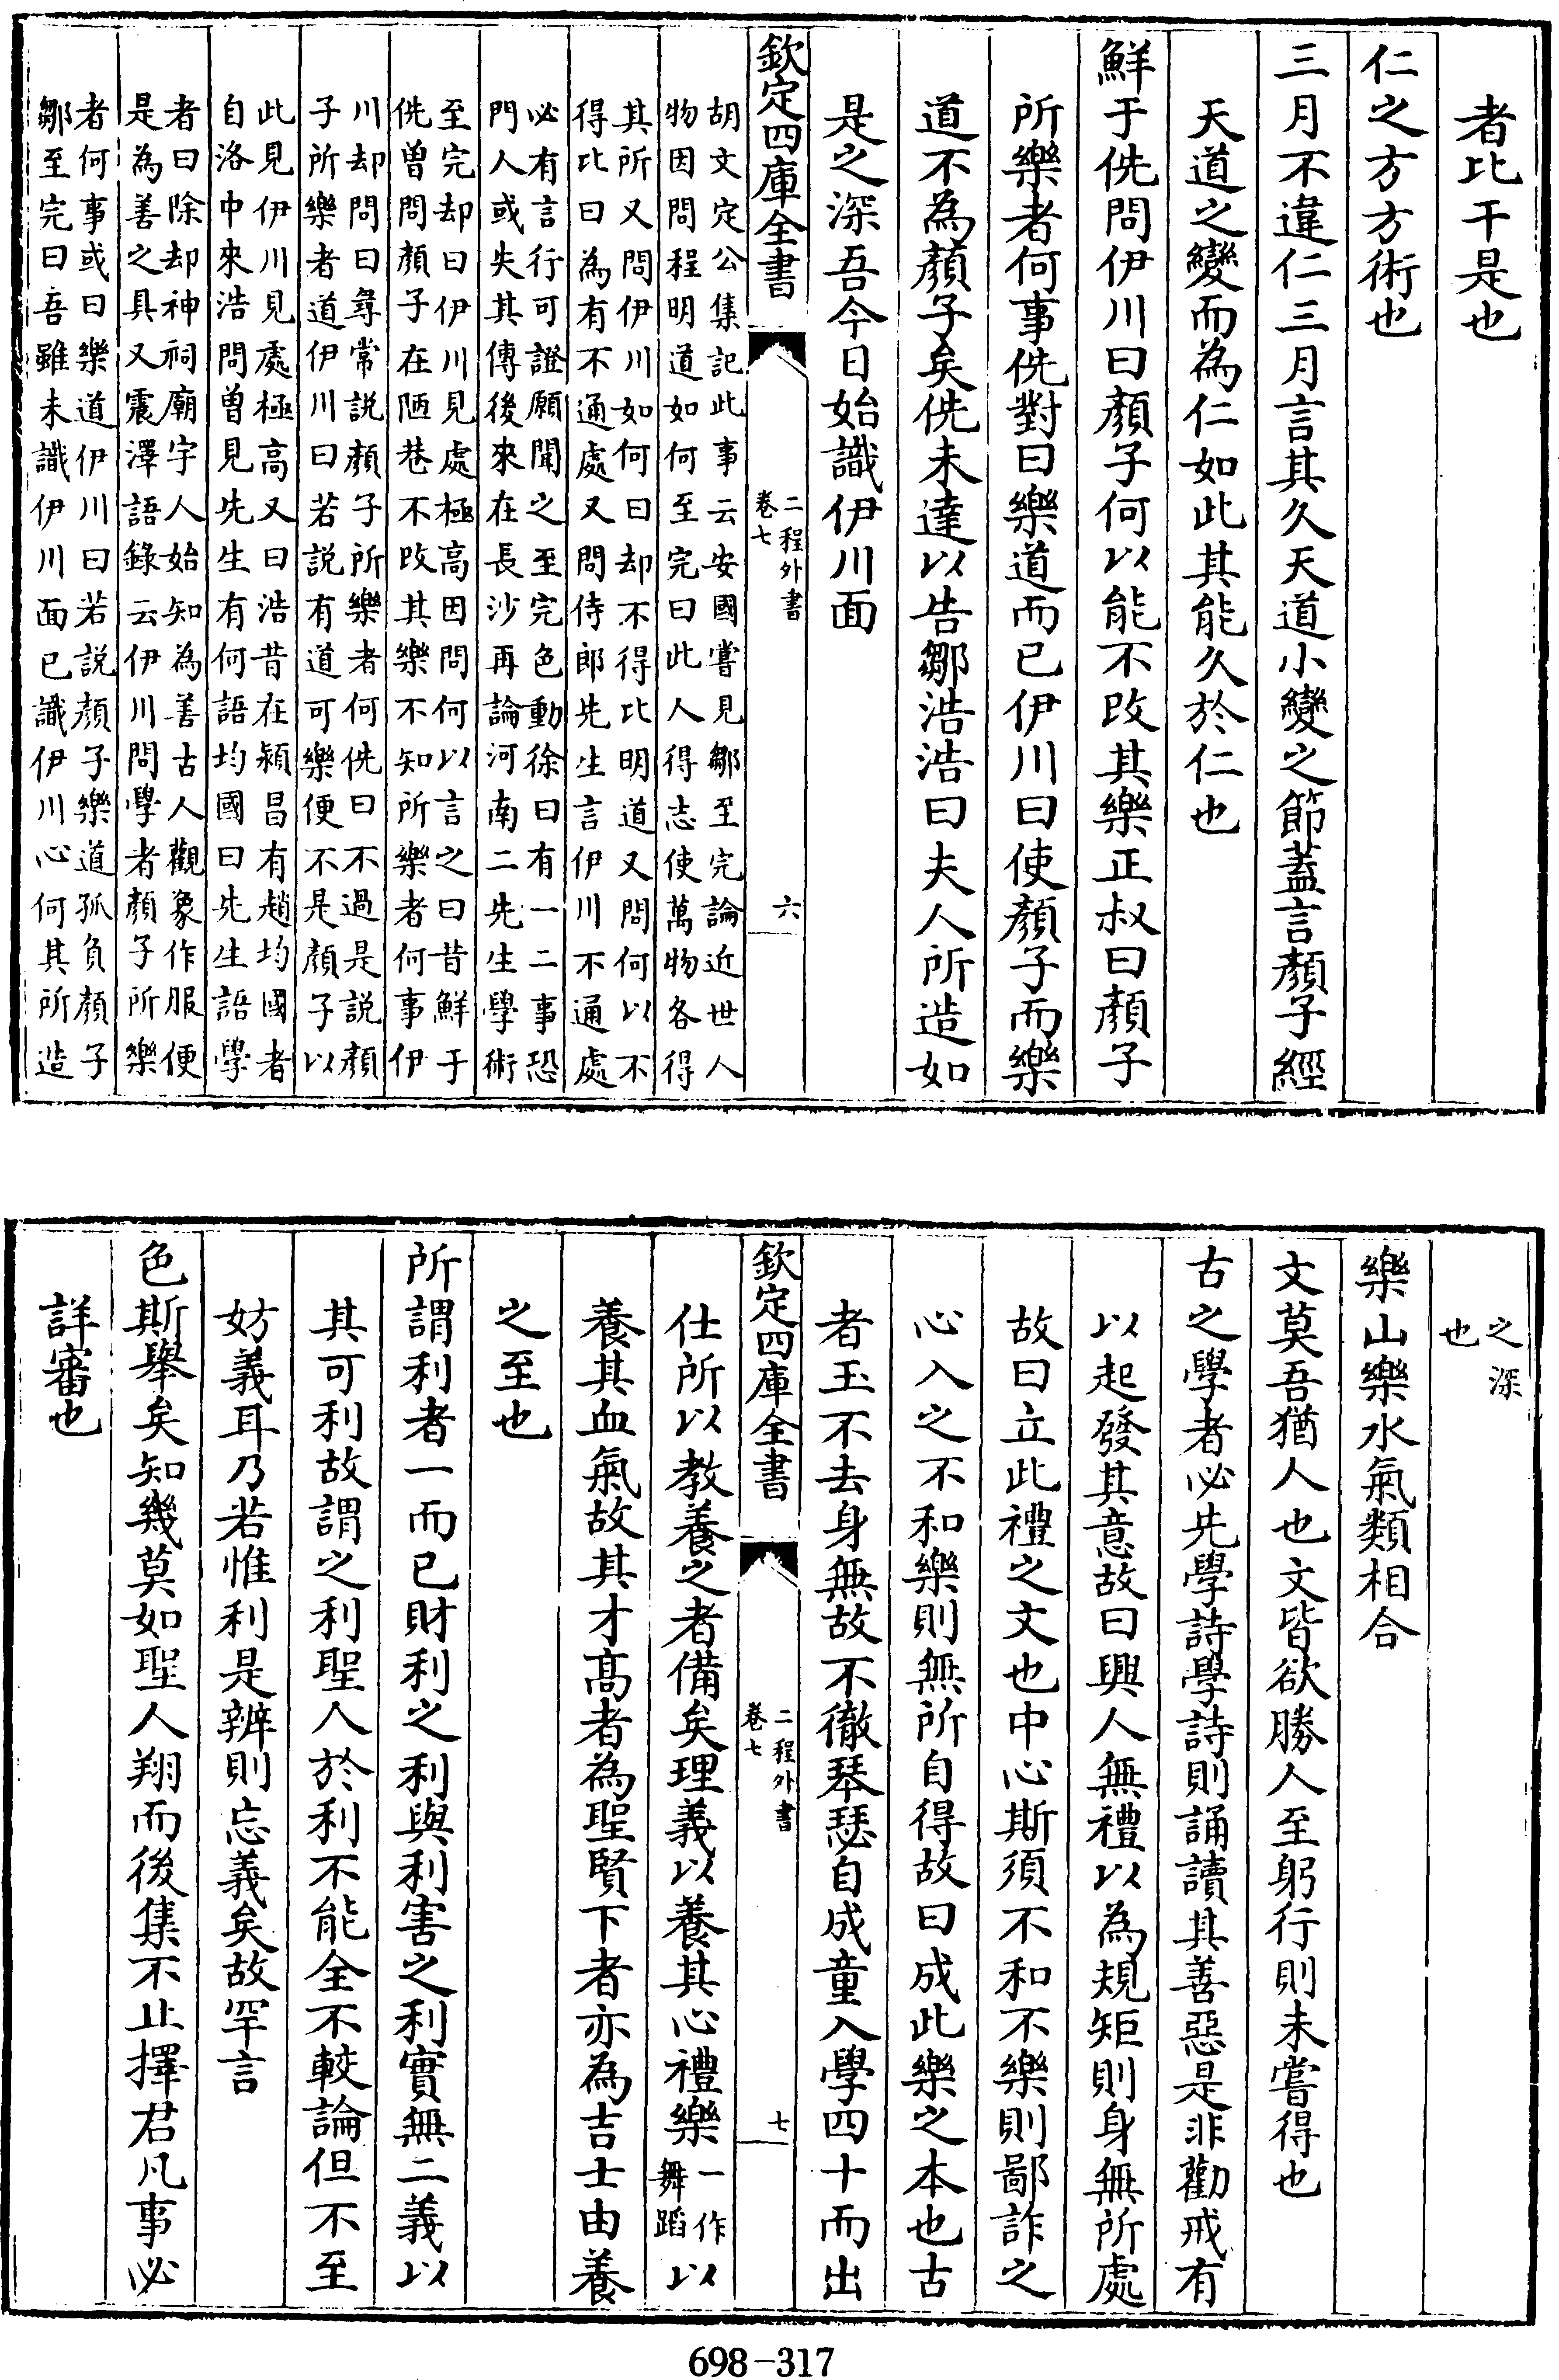 者比干是也
仁之方方術也
三月不違仁三月言其久天道小變之節蓋言顏子經
天道之變而為仁如此其能久於仁也
鮮于侁問伊川曰顏子何以能不改其樂正叔曰顏子
所樂者何事侁對曰樂道而已伊川曰使顏子而樂
道不為顏子矣侁未達以告鄒浩浩曰夫人所造如
是之深吾今日始識伊川面
欽定四庫全書
二程外書
卷七
六
胡文定公集記此事云安國嘗見鄒至完論近世人
物因問程明道如何至完曰此人得志使萬物各得
其所又問伊川如何曰却不得比明道又問何以不
得比曰為有不通處又問侍郎先生言伊川不通處
必有言行可證願聞之至完色動徐曰有一二事恐
門人或失其傳後來在長沙再論河南二先生學術
至完却曰伊川見處極高因問何以言之曰昔鮮于
侁曾問顏子在陋巷不改其樂不知所樂者何事伊
川却問曰尋常説顏子所樂者何侁曰不過是説顏
子所樂者道伊川曰若説有道可樂便不是顏子以
此見伊川見處極高又曰浩昔在潁昌有趙均國者
自洛中來浩問曾見先生有何語均國曰先生語學
者曰除却神祠廟宇人始知為善古人觀象作服便
是為善之具又震澤語錄云伊川問學者顏子所樂
者何事或曰樂道伊川曰若説顏子樂道孤負顏子
鄒至完曰吾雖未識伊川面已識伊川心何其所造
之深
也
樂山樂水氣類相合
文莫吾猶人也文皆欲勝人至躬行則未嘗得也
古之學者必先學詩學詩則誦讀其善惡是非勸戒有
以起發其意故曰興人無禮以為規矩則身無所處
故曰立此禮之文也中心斯須不和不樂則鄙詐之
心入之不和樂則無所自得故曰成此樂之本也古
者玉不去身無故不徹琴瑟自成童入學四十而出
欽定四庫全書
二程外書
卷七
七
仕所以教養之者備矣理義以養其心禮樂一作舞蹈以
養其血氣故其才高者為聖賢下者亦為吉士由養
之至也
所謂利者一而已財利之利與利害之利實無二義以
其可利故謂之利聖人於利不能全不較論但不至
妨義耳乃若惟利是辨則忘義矣故罕言
色斯舉矣知幾莫如聖人翔而後集不止擇君凡事必
詳審也
698-317